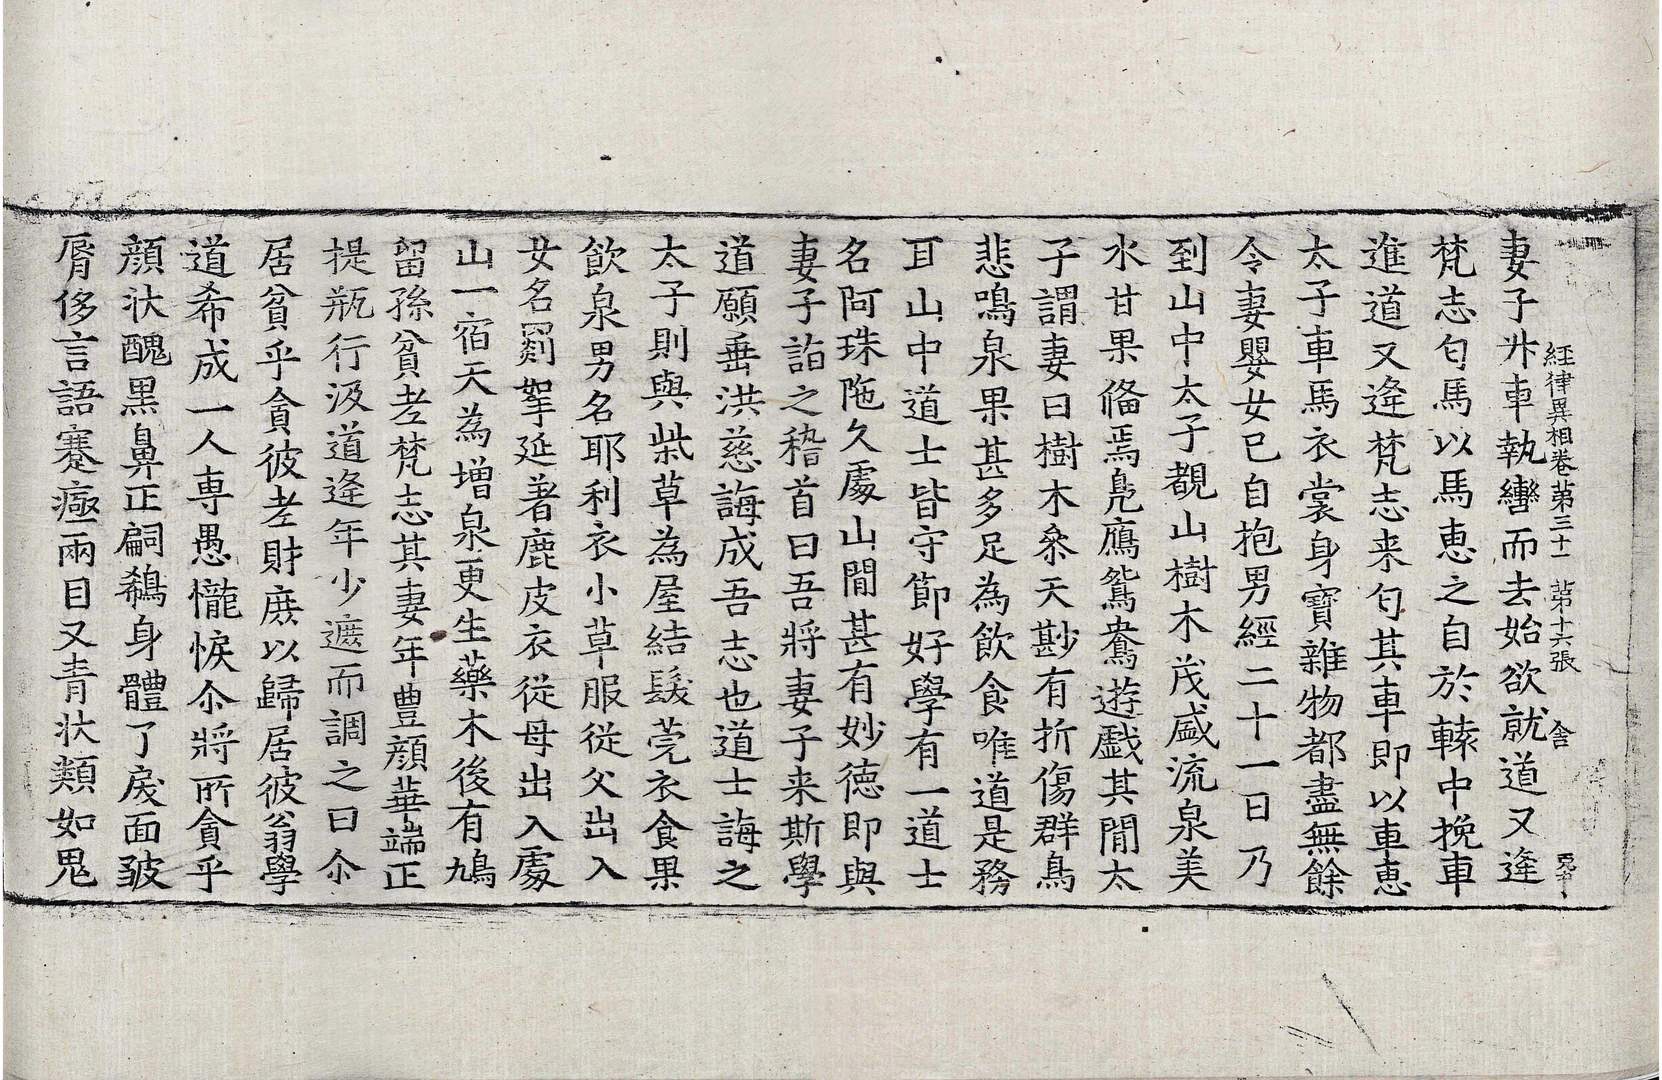 經律異相卷第三十一 第十六張 舍
妻子升車執轡而去始欲就道又逢
梵志匃馬以馬惠之自於轅中挽車
進道又逢梵志来匃其車即以車惠
太子車馬衣裳身寶雜物都盡無餘
令妻嬰女已自抱男經二十一日乃
到山中太子覩山樹木茂盛流泉美
水甘果備焉鳧鴈鴛鴦遊戲其閒太
子謂妻曰樹木叅天尠有折傷群鳥
悲鳴泉果甚多足為飲食唯道是務
耳山中道士皆守節好學有一道士
名阿珠陁久處山閒甚有妙德即與
妻子詣之稽首曰吾將妻子来斯學
道願垂洪慈誨成吾志也道士誨之
太子則與柴草為屋結髮莞衣食果
飲泉男名耶利衣小草服従父出入
女名罽拏延著鹿皮衣従母出入處
山一宿天為增泉更生藥木後有鳩
留孫貧老梵志其妻年豊顔華端正
提瓶行汲道逢年少遮而調之曰尒
居貧乎貪彼老財庶以歸居彼翁學
道希成一人専愚憹悷尒將所貪乎
顔狀醜黒鼻正匾㔸身體了戾面皺
脣侈言語蹇瘂兩目又青狀類如鬼